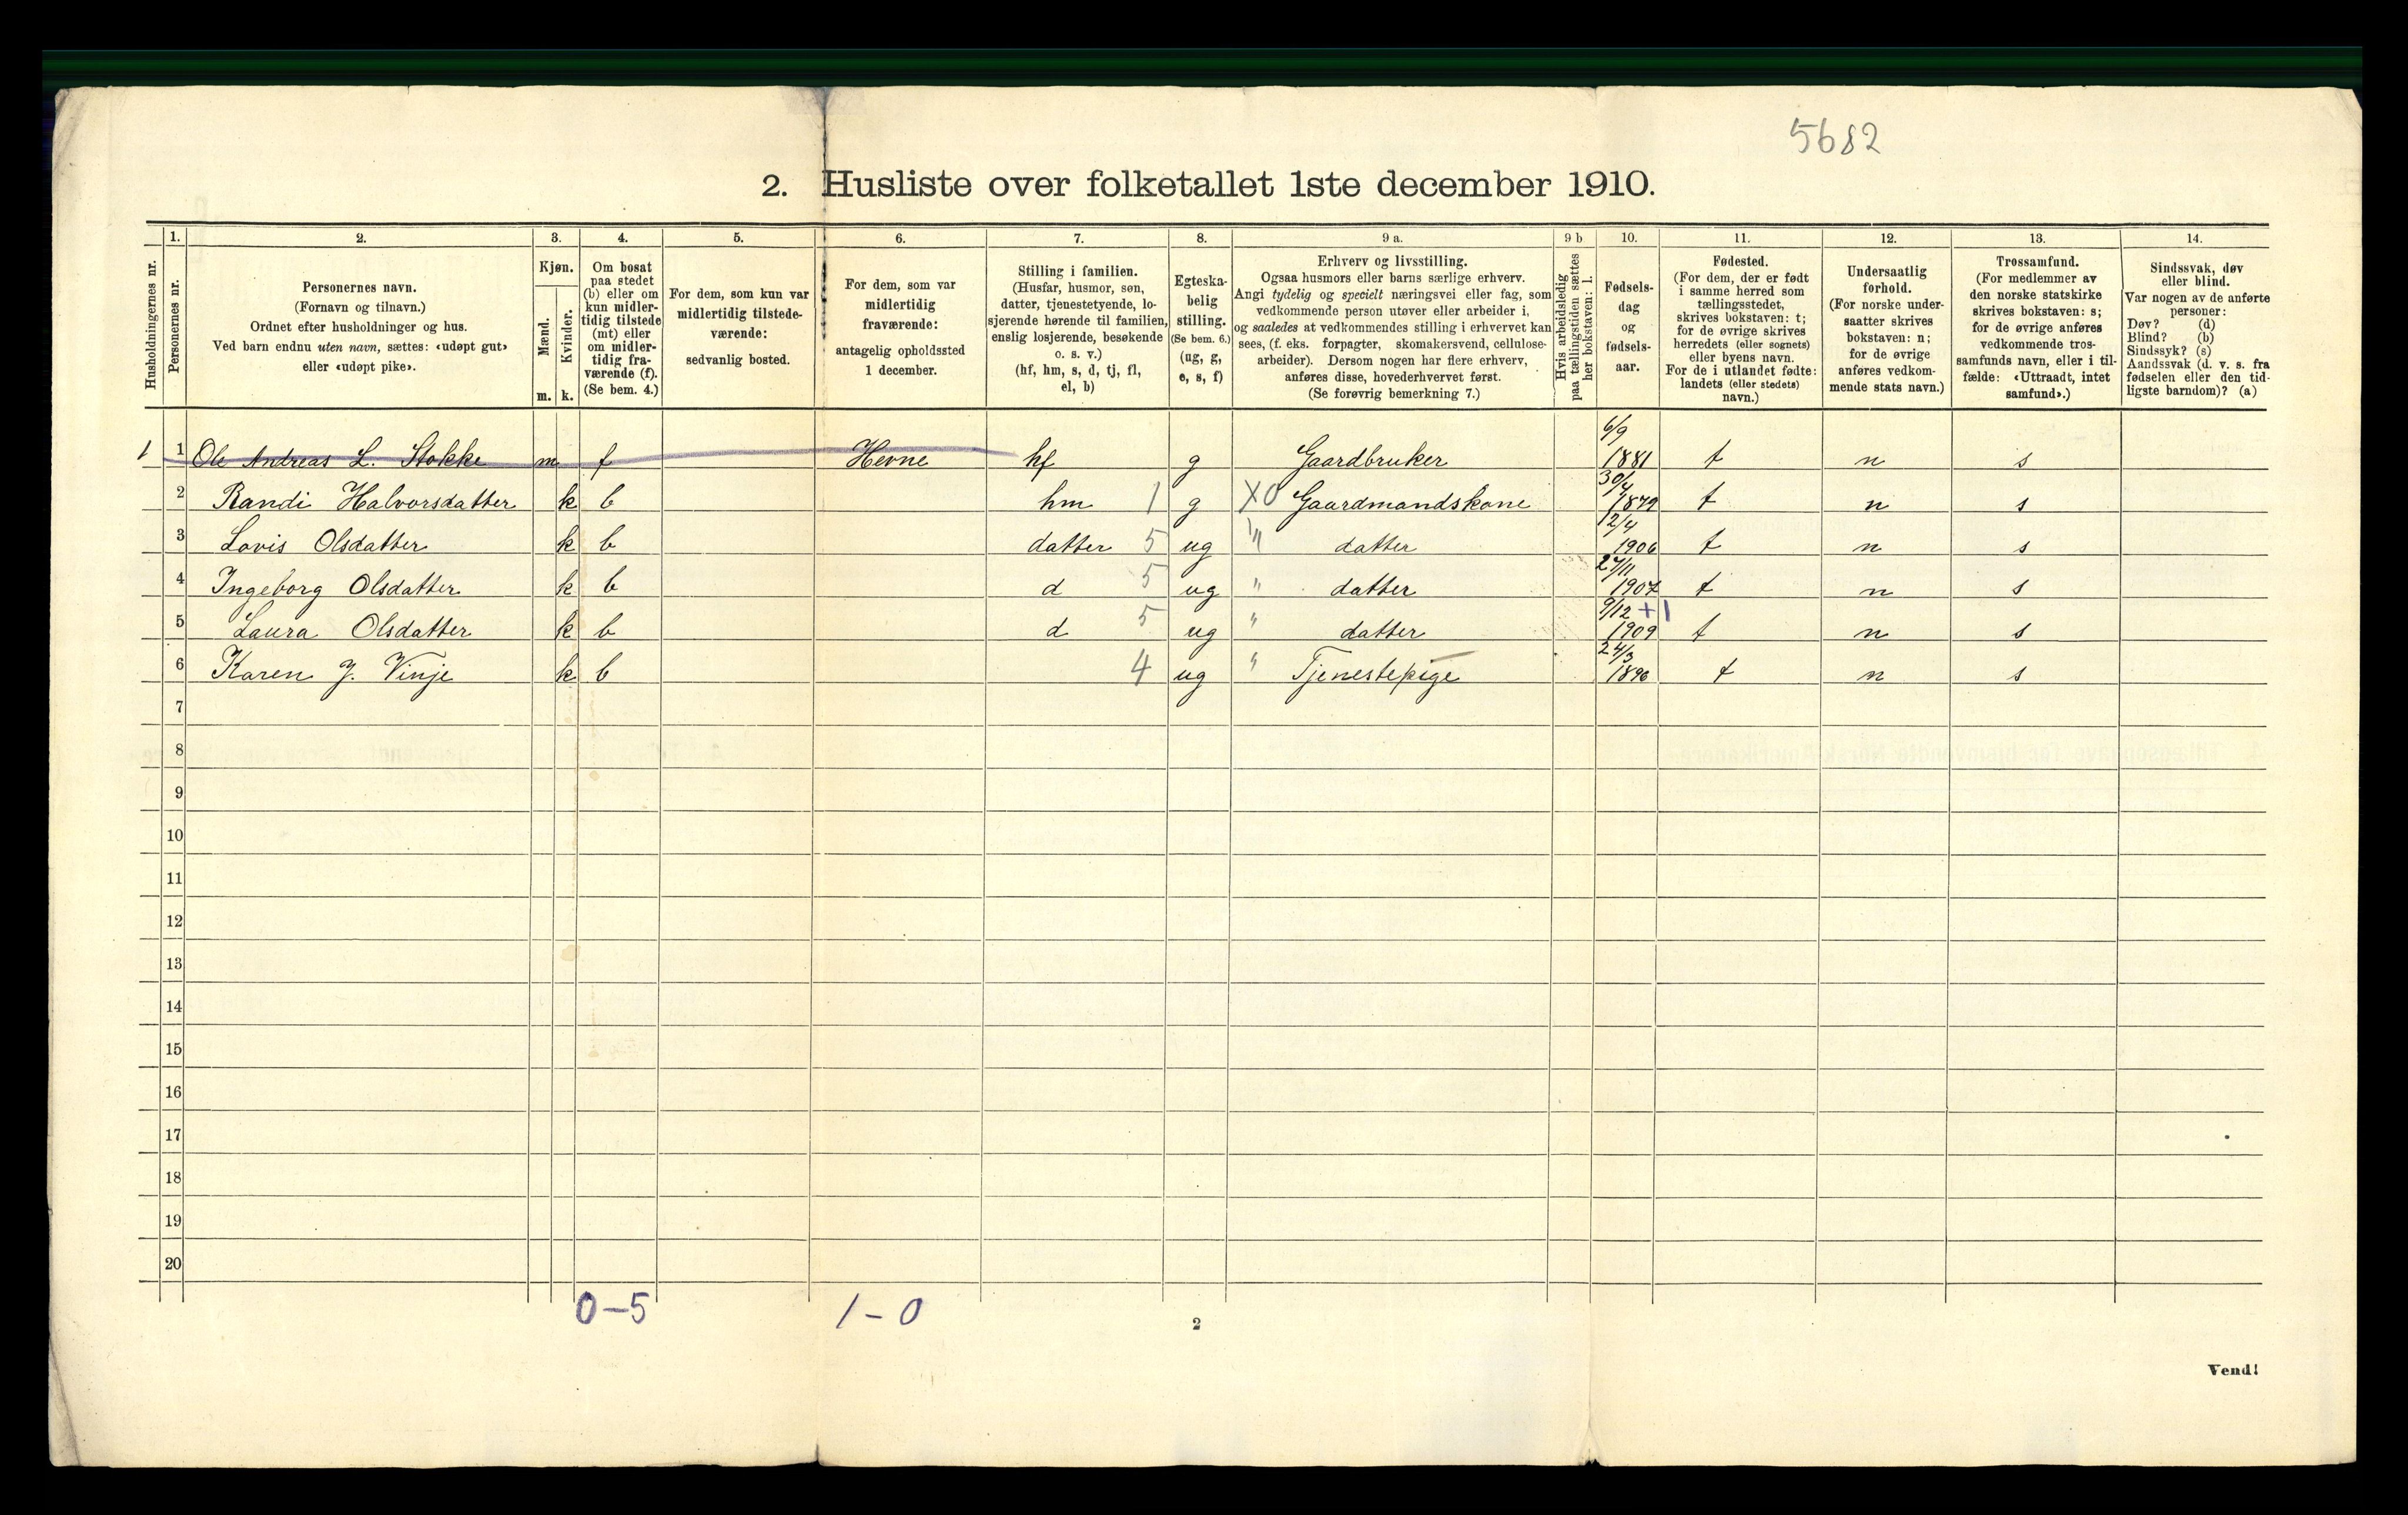 5682
2. Husliste over folketallet 1ste december 1910.
1. 2. 3. 4. 5. 6. 7. 8. 9 a. 9 b 10. 11. 12. 13. 14.
Husholdningernes nr.
Personernes nr.
Personernes navn.
(Fornavn og tilnavn.)
Ordnet efter husholdninger og hus.
Ved barn endnu uten navn, sættes: «udøpt gut»
eller «udøpt pike».
Kjøn.
Mænd.
Kvinder.
m. k.
Om bosat
paa stedet
(b) eller om
kun midler-
tidig tilstede
(mt) eller
om midler-
tidig fra-
værende (f).
(Se bem. 4.)
For dem, som kun var
midlertidig tilstede-
værende:
sedvanlig bosted.
For dem, som var
midlertidig
fraværende:
antagelig opholdssted
1 december.
Stilling i familien.
(Husfar, husmor, søn,
datter, tjenestetyende, lo-
sjerende hørende til familien,
enslig losjerende, besøkende
o. s. v.)
(hf, hm, s, d, tj, fl,
el, b)
Egteska-
belig
stilling.
(Se bem. 6.)
(ug, g,
e, s, f)
Erhverv og livsstilling.
Ogsaa husmors eller barns særlige erhverv.
Angi tydelig og specielt næringsvei eller fag, som
vedkommende person utøver eller arbeider i,
og saaledes at vedkommendes stilling i erhvervet kan
sees, (f. eks. forpagter, skomakersvend, cellulose-
arbeider). Dersom nogen har flere erhverv,
anføres disse, hovederhvervet først.
(Se forøvrig bemerkning 7.)
Hvis arbeidsledig
paa tællingstiden sættes
her bokstaven: l.
Fødsels-
dag
og
fødsels-
aar.
Fødested.
(For dem, der er født
i samme herred som
tællingsstedet,
skrives bokstaven: t;
for de øvrige skrives
herredets (eller sognets)
eller byens navn.
For de i utlandet fødte:
landets (eller stedets)
navn.)
Undersaatlig
forhold.
(For norske under-
saatter skrives
bokstaven: n;
for de øvrige
anføres vedkom-
mende stats navn.)
Trossamfund.
(For medlemmer av
den norske statskirke
skrives bokstaven: s;
for de øvrige anføres
vedkommende tros-
samfunds navn, eller i til-
fælde: «Uttraadt, intet
samfund».)
Sindssvak, døv
eller blind.
Var nogen av de anførte
personer:
Døv? (d)
Blind? (b)
Sindssyk? (s)
Aandssvak (d. v. s. fra
fødselen eller den tid-
ligste barndom)? (a)
1 1 Ole Andreas L. Stokke m f Hevne hf g Gaardbruker 6/9 1881 t n s
2 Randi Halvorsdatter k b hm 1 g XO Gaardmandskone 30/4 1879 t n s
3 Lovis Olsdatter k b datter 5 ug " datter 12/4 1906 t n s
4 Ingeborg Olsdatter k b d 5 ug " datter 27/11 1907 t n s
5 Laura Olsdatter k b d 5 ug " datter 9/12 +1 1909 t n s
6 Karen J. Vinje k b 4 ug " Tjenestepige 24/3 1896 t n s
7
8
9
10
11
12
13
14
15
16
17
18
19
20
0-5 1-0
2
Vend!